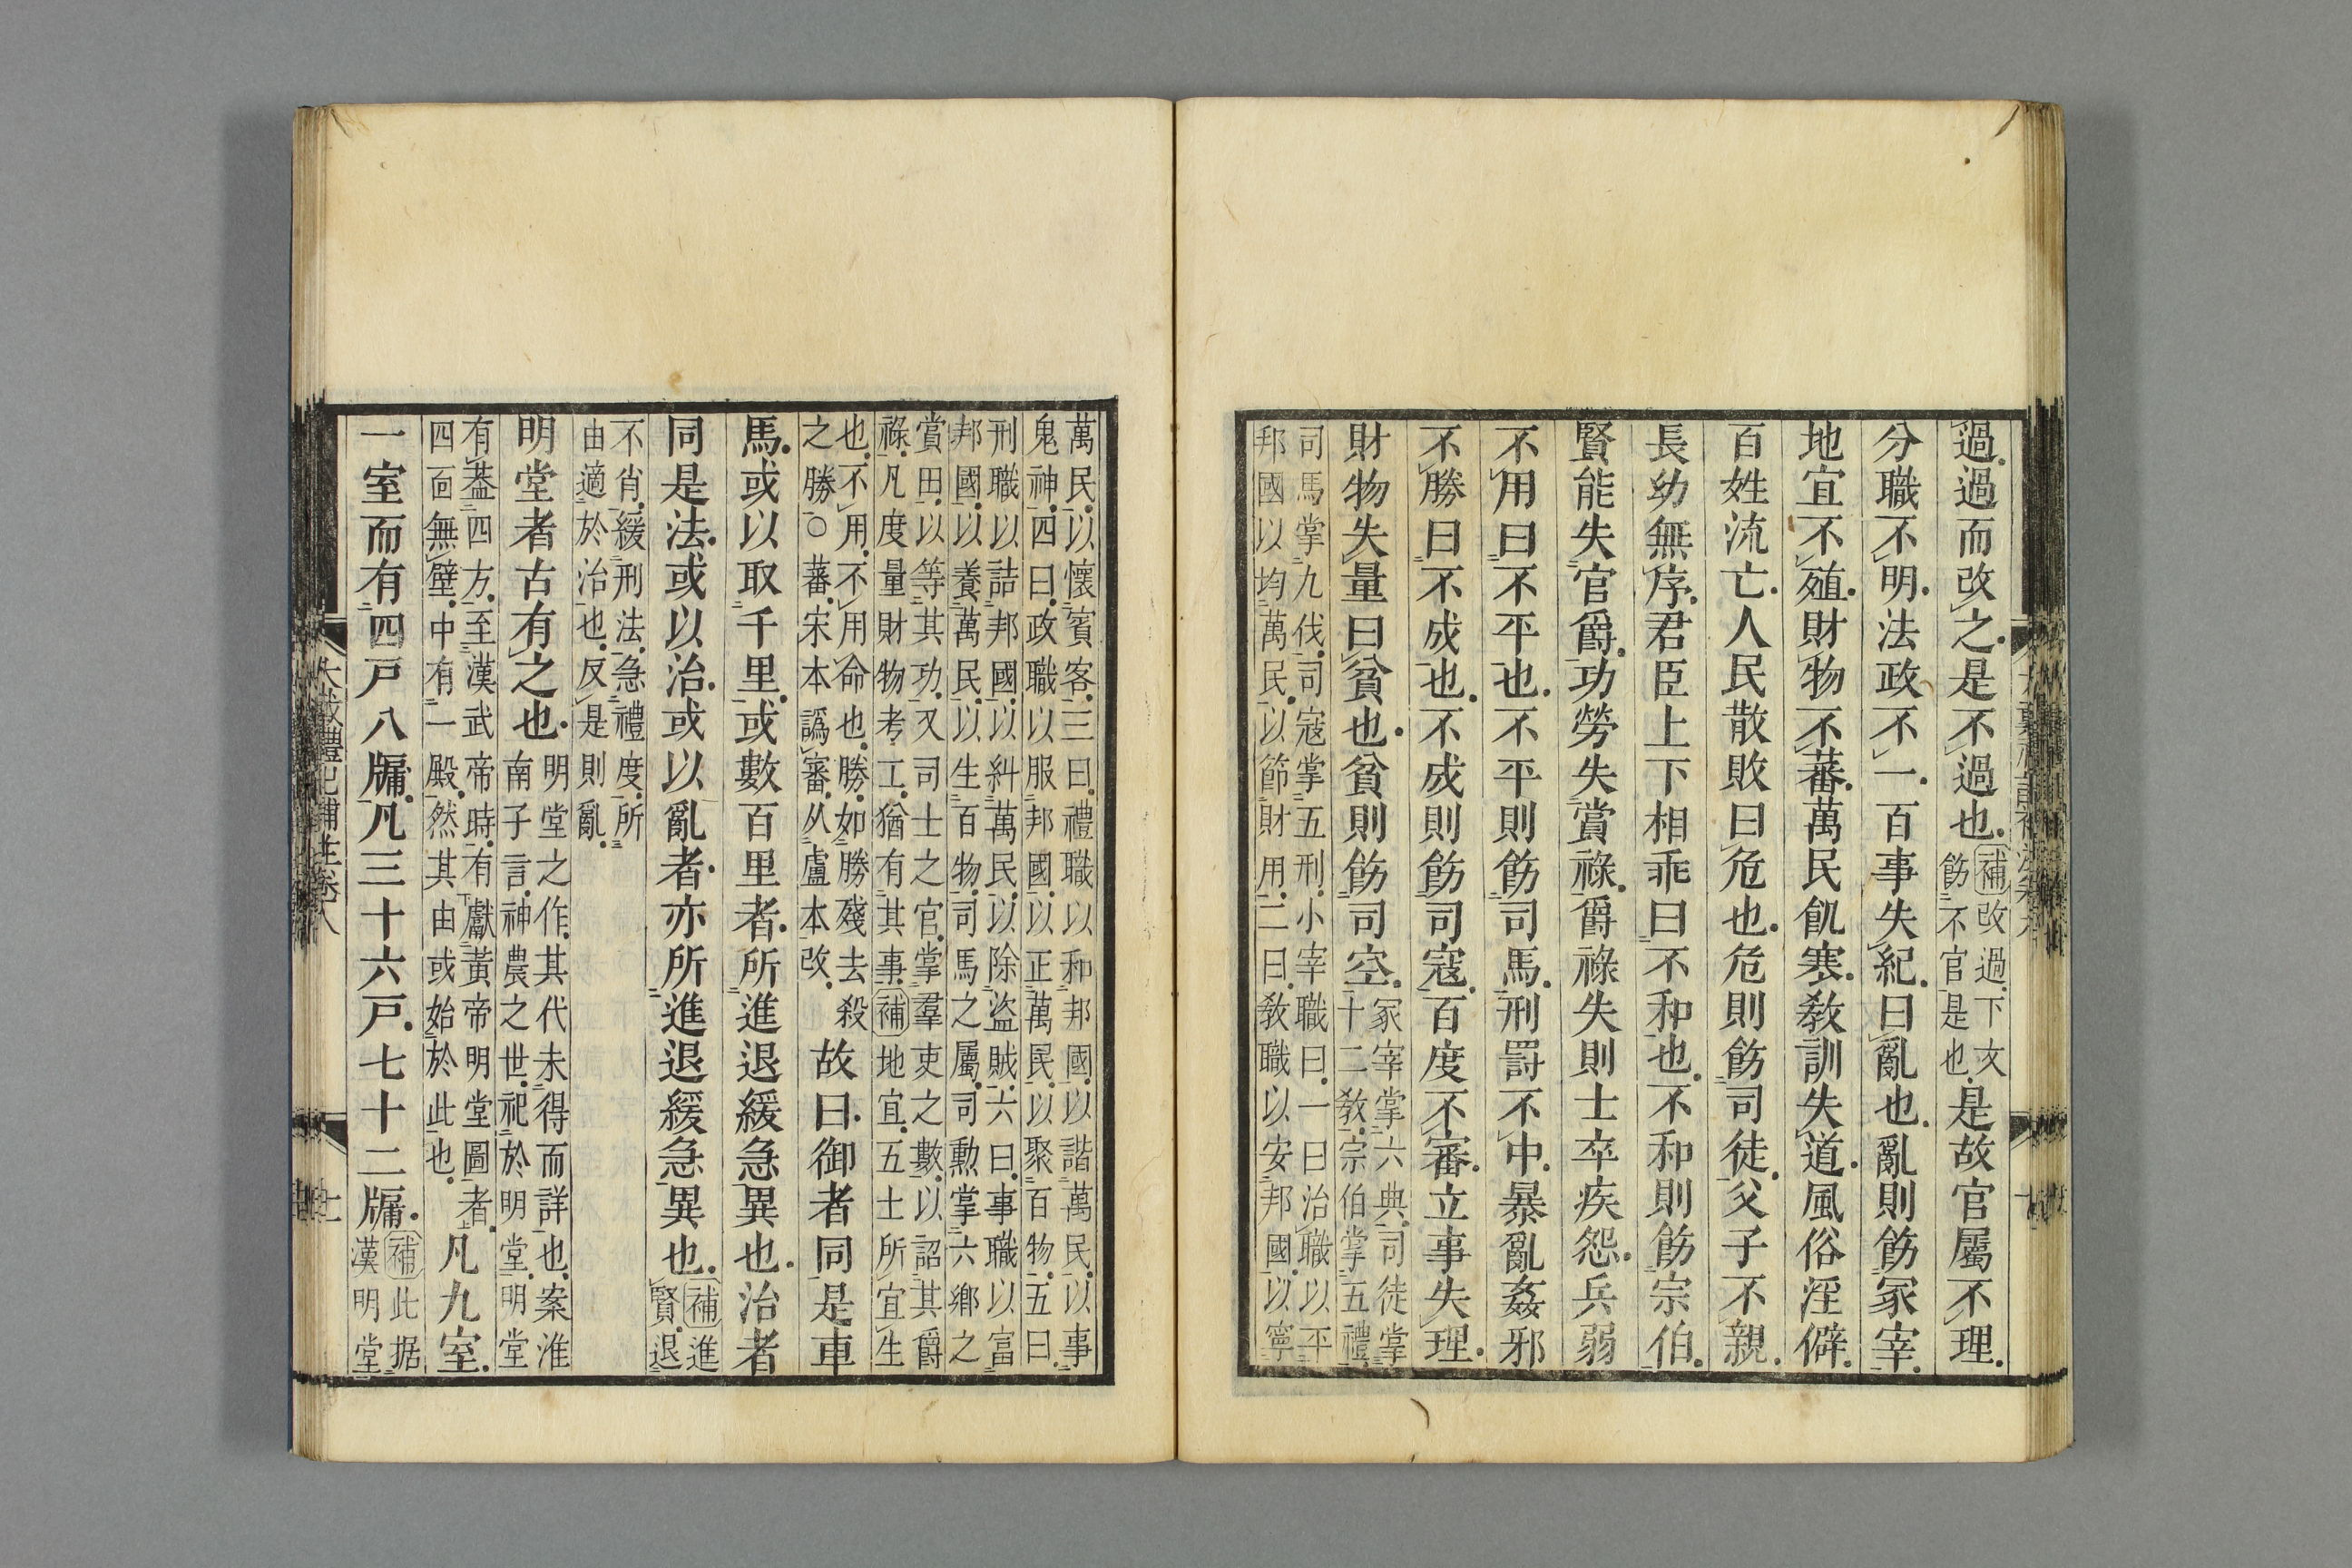 過過而改之是不過也補改過下文飭不官是也是故官屬不理
分職不明法政不一百事失紀曰亂也亂則飭冢宰
地宜不殖財物不蕃萬民飢寒敎訓失道風俗淫僻
百姓流亡人民散敗曰危也危則飭司徒父子不親
長幼無序君臣上下相乖曰不和也不和則飭宗伯
賢能失官爵功勞失賞祿爵祿失則士卒疾怨兵弱
不用曰不平也不平則飭司馬刑罰不中暴亂姦邪
不勝曰不成也不成則飭司寇百度不審立事失理
財物失量曰貧也貧則飭司空冢宰掌六典司徒掌十二敎宗伯掌五禮
司馬掌九伐司寇掌五刑小宰職曰一曰治職以平
邦國以均萬民以節財用二曰敎職以安邦國以寧
萬民以懷賓客三曰禮職以和邦國以諧萬民以事
鬼神四曰政職以服邦國以正萬民以聚百物五曰
刑職以詰邦國以糾萬民以除盜賊六曰事職以富
邦國以養萬民以生百物司馬之屬司勳掌六鄉之
賞田以等其功又司士之官掌羣吏之數以詔其爵
祿凡度量財物考工猶有其事補地宜五土所宜生
也不用不用命也勝如勝殘去殺
之勝○蕃宋本譌審从盧本改
故曰御者同是車
馬或以取千里或數百里者所進退緩急異也治者
同是法或以治或以亂者亦所進退緩急異也補進賢退
不肖緩刑法急禮度所
由適於治也反是則亂
明堂者古有之也明堂之作其代未得而詳也案淮
南子言神農之世祀於明堂明堂
有蓋四方至漢武帝時有獻黃帝明堂圖者
四面無壁中有一殿然其由或始於此也
凡九室
一室而有四戶八牖凡三十六戶七十二牖補此据
漢明堂
大戴禮記補注卷八